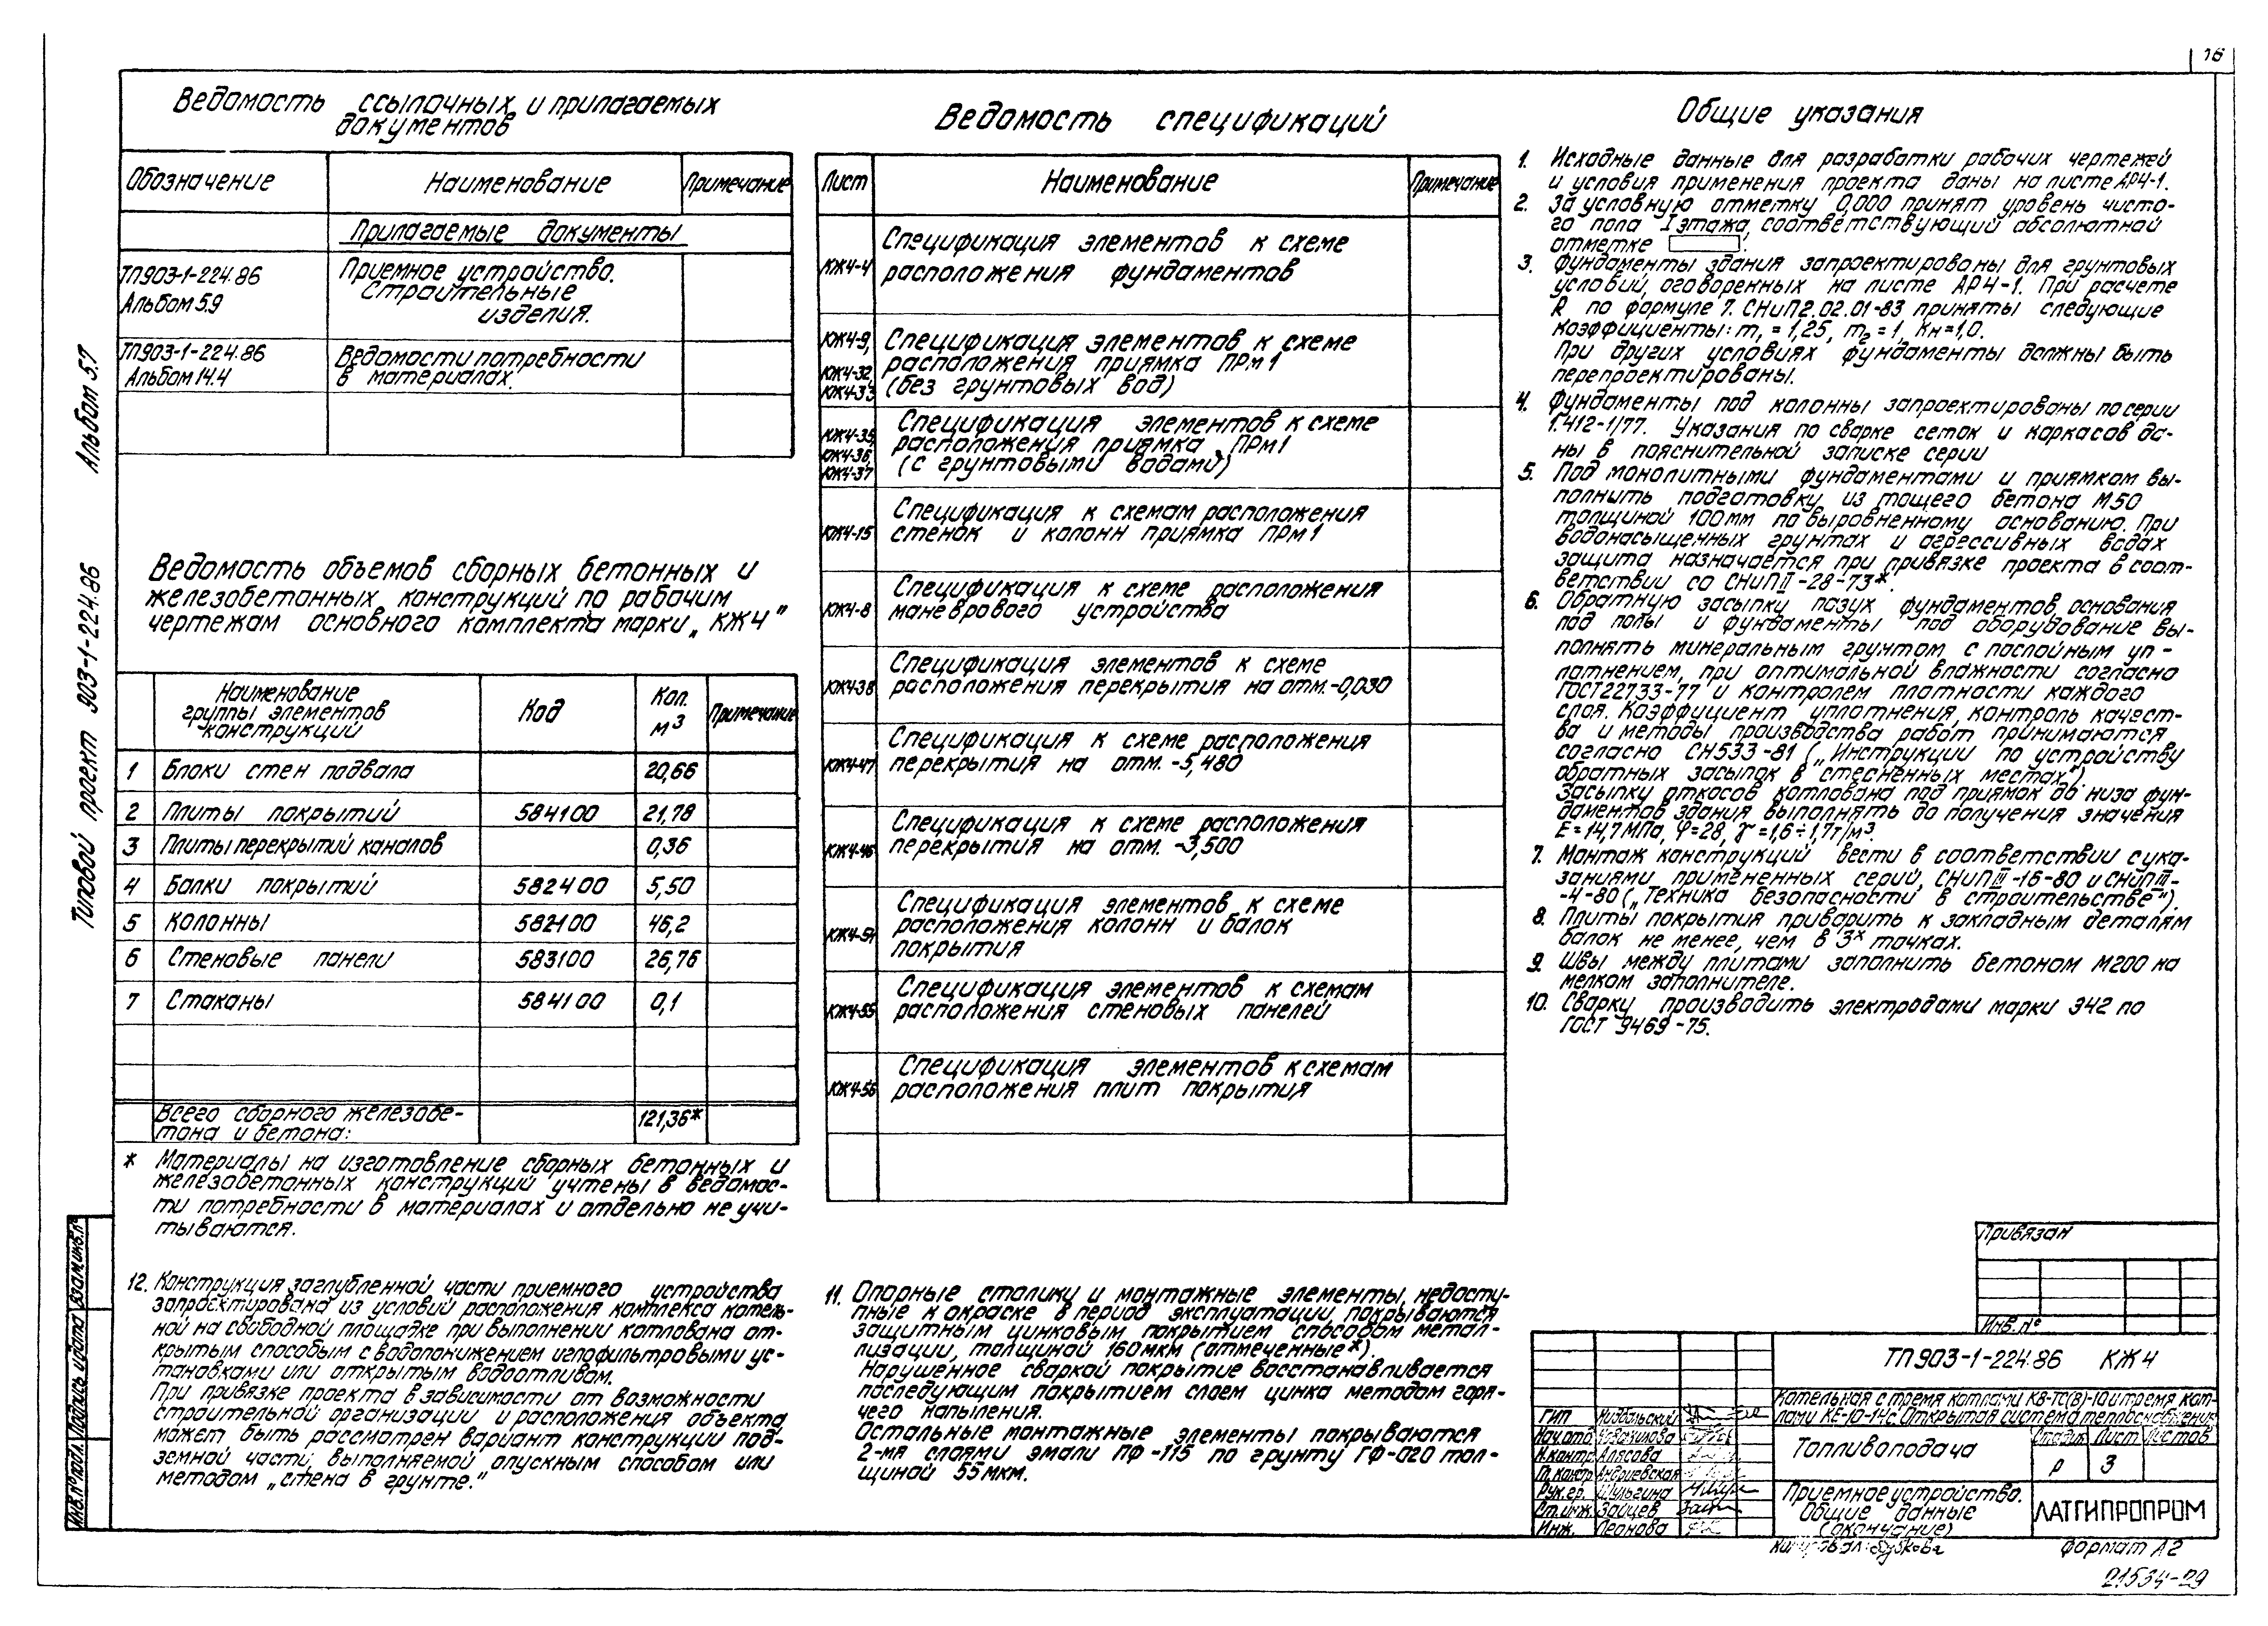 16
Ведомость ссылочных и прилагаемых
документов
Обозначение
Наименование
Примечание
Прилагаемые документы
ТП903-1-224.86
Альбом 5.9
Приемное устройство.
Строительные
изделия.
ТП903-1-224.86
Альбом 14.4
Ведомости потребности
в материалах.
Ведомость объемов сборных бетонных и
железобетонных конструкций по рабочим
чертежам основного комплекта марки „КЖ4"
Наименование
группы элементов
конструкций
Код
Кол.
м3
Примечание
1 Блоки стен подвала 20,66
2 Плиты покрытий 584100 21,78
3 Плиты перекрытий каналов 0,36
4 Балки покрытий 582400 5,50
5 Колонны 582100 46,2
6 Стеновые панели 583100 26,76
7 Стаканы 584100 0,1
Всего сборного железобе-
тона и бетона: 121,36*
* Материалы на изготовление сборных бетонных и
железобетонных конструкций учтены в ведомос-
ти потребности в материалах и отдельно не учи-
тываются.
12. Конструкция заглубленной части приемного устройства
запроектирована из условий расположения комплекса котель-
ной на свободной площадке при выполнении котлована от-
крытым способом с водопонижением иглофильтровыми ус-
тановками или открытым водоотливом.
При привязке проекта в зависимости от возможности
строительной организации и расположения объекта
может быть рассмотрен вариант конструкции под-
земной части, выполняемой опускным способом или
методом „стена в грунте."
Ведомость спецификаций
Лист
Наименование
Примечание
КЖ4-4
Спецификация элементов к схеме
расположения фундаментов
КЖ4-9,
КЖ4-32
КЖ4-33
Спецификация элементов к схеме
расположения приямка ПРм1
(без грунтовых вод)
КЖ4-35,
КЖ4-36,
КЖ4-37
Спецификация элементов к схеме
расположения приямка ПРм1
(с грунтовыми водами)
КЖ4-15
Спецификация к схемам расположения
стенок и колонн приямка ПРм1
КЖ4-8
Спецификация к схеме расположения
маневрового устройства
КЖ4-38
Спецификация элементов к схеме
расположения перекрытия на отм.-0,030
КЖ4-47
Спецификация к схеме расположения
перекрытия на отм. -5,480
КЖ4-46
Спецификация к схеме расположения
перекрытия на отм. -3,500
КЖ4-51
Спецификация элементов к схеме
расположения колонн и балок
покрытия
КЖ4-55
Спецификация элементов к схемам
расположения стеновых панелей
КЖ4-56
Спецификация элементов к схемам
расположения плит покрытия
11. Опорные столики и монтажные элементы, недосту-
пные к окраске в период эксплуатации, покрываются
защитным цинковым покрытием способом метал-
лизации, толщиной 160мкм (отмеченные*).
Нарушенное сваркой покрытие восстанавливается
последующим покрытием слоем цинка методом горя-
чего напыления.
Остальные монтажные элементы покрываются
2-мя слоями эмали ПФ-115 по грунту ГФ-020 тол-
щиной 55мкм.
Общие указания
1. Исходные данные для разработки рабочих чертежей
и условия применения проекта даны на листе АР4-1.
2. За условную отметку 0,000 принят уровень чисто-
го пола I этажа, соответствующий абсолютной
отметке
3. Фундаменты здания запроектированы для грунтовых
условий, оговоренных на листе АР4-1. При расчете
R по формуле 7. СНиП2.02.01-83 приняты следующие
коэффициенты: m1=1,25, m2=1, Kн=1,0.
При других условиях фундаменты должны быть
перепроектированы.
4. Фундаменты под колонны запроектированы по серии
1.412-1/77. Указания по сварке сеток и каркасов да-
ны в пояснительной записке серии
5. Под монолитными фундаментами и приямком вы-
полнить подготовку из тощего бетона М50
толщиной 100мм по выровненному основанию. При
водонасыщенных грунтах и агрессивных водах
защита назначается при привязке проекта в соот-
ветствии со СНиП II-28-73*.
6. Обратную засыпку пазух фундаментов, основания
под полы и фундаменты под оборудование вы-
полнять минеральным грунтом с послойным уп-
лотнением, при оптимальной влажности согласно
ГОСТ22733-77 и контролем плотности каждого
слоя. Коэффициент уплотнения, контроль качест-
ва и методы производства работ принимаются
согласно СН533-81 („Инструкции по устройству
обратных засыпок в стесненных местах").
Засыпку откосов котлована под приямок до низа фун-
даментов здания выполнять до получения значения
E=14,7МПа, φ=28, γ=1,6÷1,7т/м3.
7. Монтаж конструкций вести в соответствии с ука-
заниями примененных серий, СНиП III-16-80 и СНиП III-
-4-80 („Техника безопасности в строительстве").
8. Плиты покрытия приварить к закладным деталям
балок не менее, чем в 3х точках.
9. Швы между плитами заполнить бетоном М200 на
мелком заполнителе.
10. Сварку производить электродами марки Э42 по
ГОСТ 9469-75.
Типовой проект 903-1-224.86 Альбом 5.7
Инв.№подл. Подпись и дата Взам.инв.№
Привязан
Инв.№
ТП903-1-224.86 КЖ4
Котельная с тремя котлами КВ-ТС(В)-10 и тремя кот-
лами КЕ-10-14с. Открытая система теплоснабжения
ГИП
Нач.отд.
Н.контр. Алясова
Гл.констр. Андриевская
Рук.гр. Шульгина
Ст.инж. Зайцев
Инж. Леонова
Топливоподача
Стадия Лист Листов
Р 3
Приемное устройство.
Общие данные
(окончание)
ЛАТГИПРОПРОМ
Формат А2
21534-29